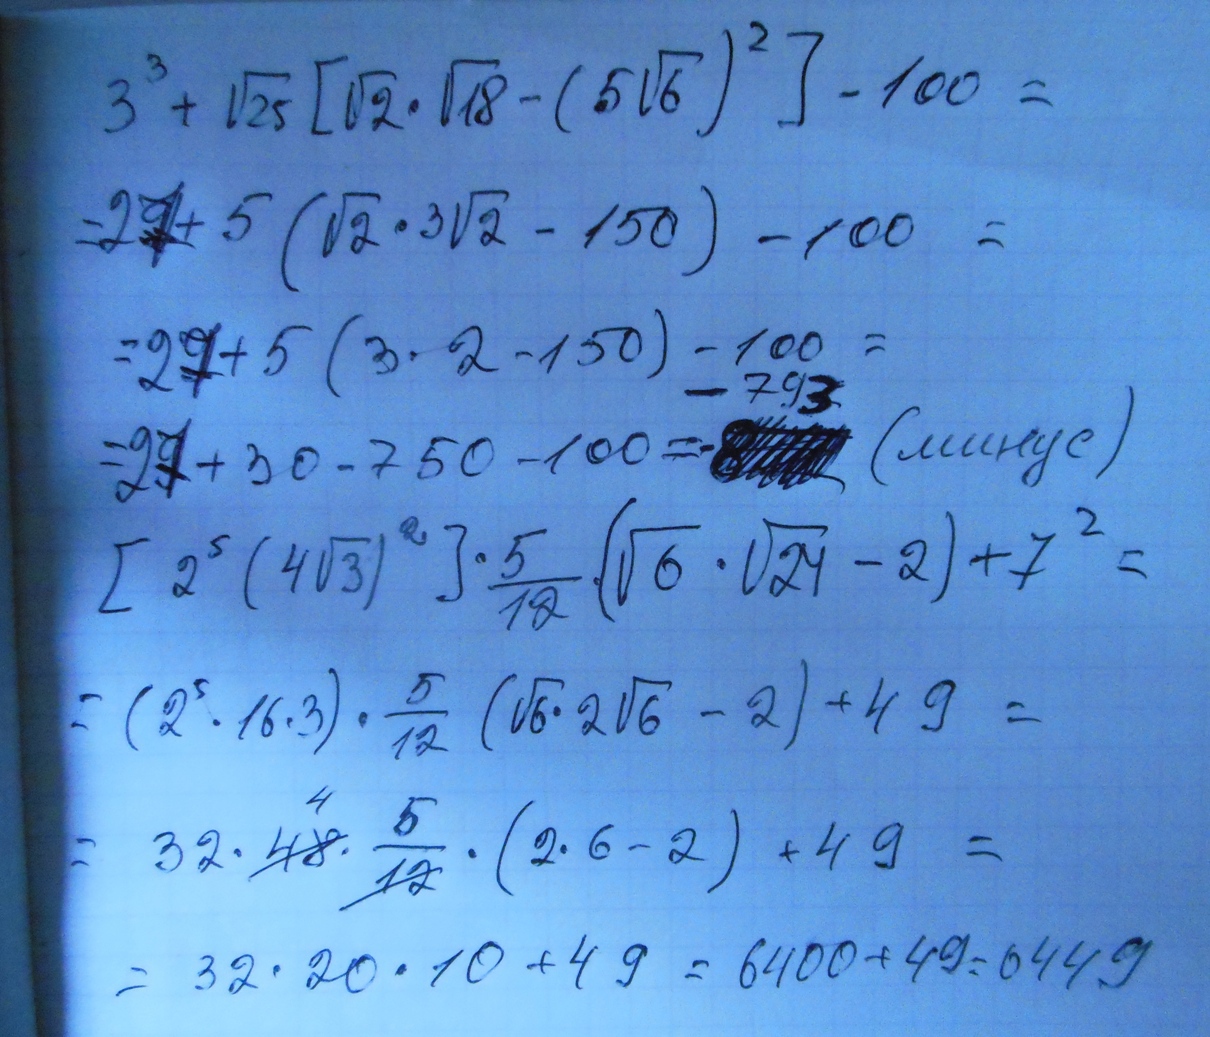 3³ + √25 [√2 · √18 - (5√6)²] - 100 =
= 27 + 5 (√2 · 3√2 - 150) - 100 =
= 27 + 5 (3 · 2 - 150) - 100 =
= 27 + 30 - 750 - 100 = - 793 (минус)
[2⁵ (4√3)²] · 5/12 · (√6 · √24 - 2) + 7² =
= (2⁵ · 16 · 3) · 5/12 (√6 · 2√6 - 2) + 49 =
4
= 32 · 48 · 5/12 · (2 · 6 - 2) + 49 =
= 32 · 20 · 10 + 49 = 6400 + 49 = 6449